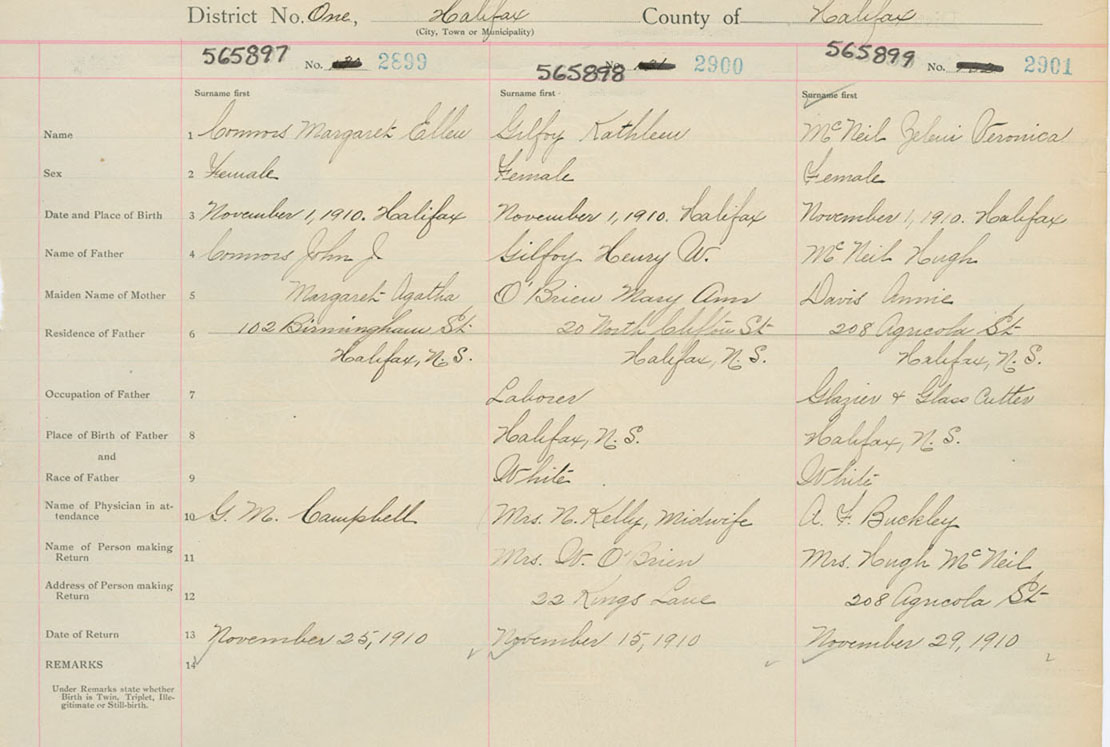 District No. One, Halifax County of Halifax
(City, Town or Municipality)
565897 No. 2899 565898 No. 2900 565899 No. 2901
Surname first Surname first Surname first
Name 1 Connors Margaret Ellen Gilfoy Kathleen McNeil Veronica
Sex 2 Female Female Female
Date and Place of Birth 3 November 1, 1910. Halifax November 1, 1910. Halifax November 1, 1910. Halifax
Name of Father 4 Connors John J. Gilfoy Henry W. McNeil Hugh
Maiden Name of Mother 5 Margaret Agatha O'Brien Mary Ann Davis Annie
Residence of Father 6 102 Birmingham St 20 North Clifton St 208 Agricola St
Halifax, N.S. Halifax, N.S. Halifax, N.S.
Occupation of Father 7 Laborer Glazier & Glass Cutter
Place of Birth of Father 8 Halifax, N.S. Halifax, N.S.
and
Race of Father 9 White White
Name of Physician in at-
tendance 10 G. M. Campbell Mrs. N. Kelly, Midwife A. F. Buckley
Name of Person making
Return 11 Mrs. W. O'Brien Mrs. Hugh McNeil
Address of Person making
Return 12 22 Kings Lane 208 Agricola St
Date of Return 13 November 25, 1910 November 15, 1910 November 29, 1910
REMARKS 14
Under Remarks state whether
Birth is Twin, Triplet, Ille-
gitimate or Still-birth.